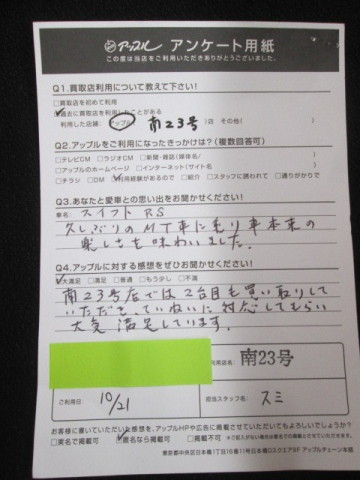 アップル アンケート用紙
この度は当店をご利用いただきありがとうございました。
Q1.買取店利用について教えて下さい!
□買取店を初めて利用
☑過去に買取店を利用したことがある
利用した店舗: アップル 南23号 店 その他( )
Q2.アップルをご利用になったきっかけは?(複数回答可)
□テレビCM □ラジオCM □新聞・雑誌(媒体名/ )
□アップルのホームページ □インターネット(サイト名 )
□チラシ □DM ☑利用経験があるので □紹介 □スタッフに誘われて □通りがかりで
Q3.あなたと愛車との思い出をお聞かせください!
車名: スイフト RS
久しぶりのMT車に乗り車本来の
楽しさを味わいました。
Q4.アップルに対する感想をぜひお聞かせください!
☑大満足 □満足 □普通 □もう少し □不満
南23号店では2台目も買い取りして
いただき、ていねいに対応してもらい
大気満足しています。
店名: 南23号
ご利用日: 10/21
担当スタッフ名: スミ
お客様に書いていただいた感想を、アップルHPや広告に掲載させていただいてもよろしいでしょうか?
□実名で掲載可 ☑匿名なら掲載可 □掲載不可 ※ご記入がない場合は匿名での掲載とさせていただきます。
東京都中央区日本橋1丁目16番11号日本橋Dスクエア5F アップルチェーン本部